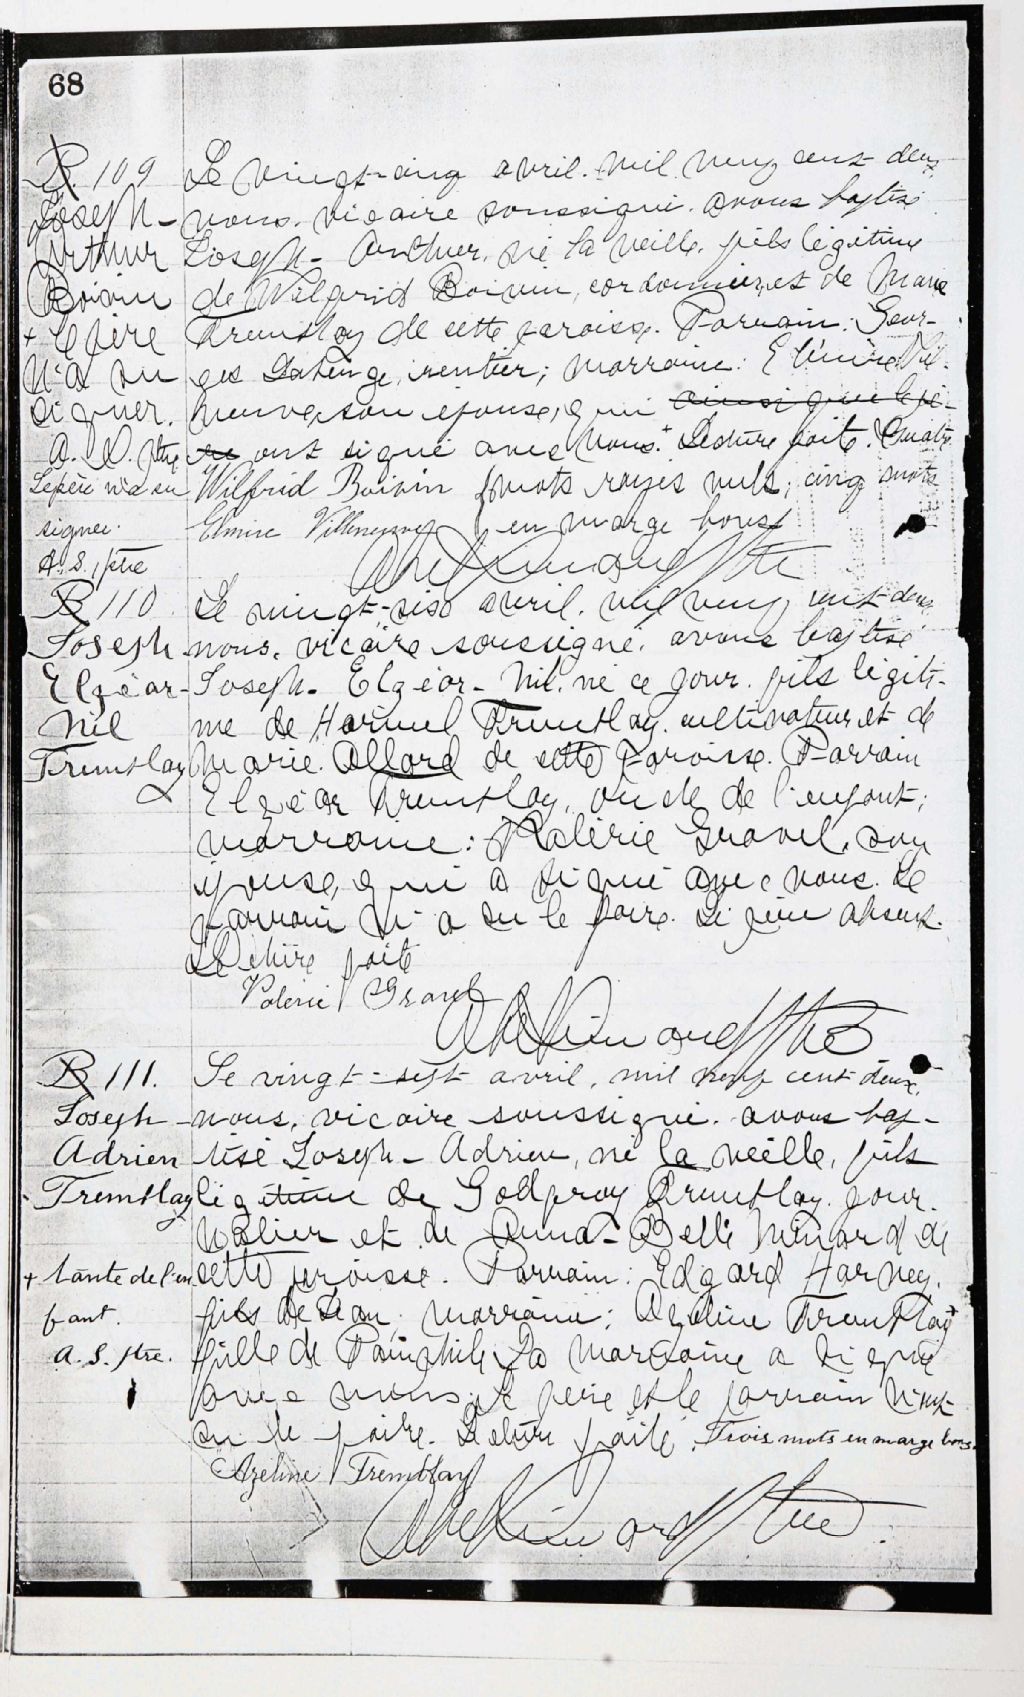 68
B. 109
Joseph-
Arthur
Boivin
+ Le père
n'a su
signer.
A. S. ptre
Le père n'a su
signer.
A. S. ptre
Le vingt-cinq avril, mil neuf cent deux,
nous, vicaire soussigné, avons baptisé
Joseph-Arthur, né la veille, fils légitime
de Wilfrid Boivin, cordonnier, et de Marie
Tremblay de cette paroisse. Parrain: Geor-
ges , rentier; marraine: Elmire Vil-
leneuve, son épouse, qui ainsi que le pè-
re ont signé avec nous.+ Lecture faite. Quatre
Wilfrid Boivin mots rayés nuls, cinq mots
Elmire Villeneuve en marge bons
ptre
B 110
Joseph
Elzéar-
Nil
Tremblay
Le vingt-six avril, mil neuf cent deux,
nous, vicaire soussigné, avons baptisé
Joseph-Elzéar-Nil, né ce jour, fils légiti-
me de Tremblay, cultivateur, et de
Marie Allard de cette paroisse. Parrain
Elzéar Tremblay, oncle de l'enfant;
marraine: Valérie Gravel, son
épouse, qui a signé avec nous. Le
parrain n'a su le faire. Le père absent.
Lecture faite
Valérie Gravel
ptre
B 111.
Joseph
Adrien
Tremblay
+ tante de l'en
fant.
A. S. ptre.
Le vingt-sept avril, mil neuf cent deux,
nous, vicaire soussigné, avons bap-
tisé Joseph-Adrien, né la veille, fils
légitime de Godfroy Tremblay, jour-
nalier et de Anna-Belle Ménard de
cette paroisse. Parrain: Edgard Harvey,
fils de Jean; marraine: Azeline Tremblay+
fille de Pamphile. La marraine a signé
avec nous; le père et le parrain n'ont
su le faire. Lecture faite. Trois mots en marge bons.
Azeline Tremblay
ptre